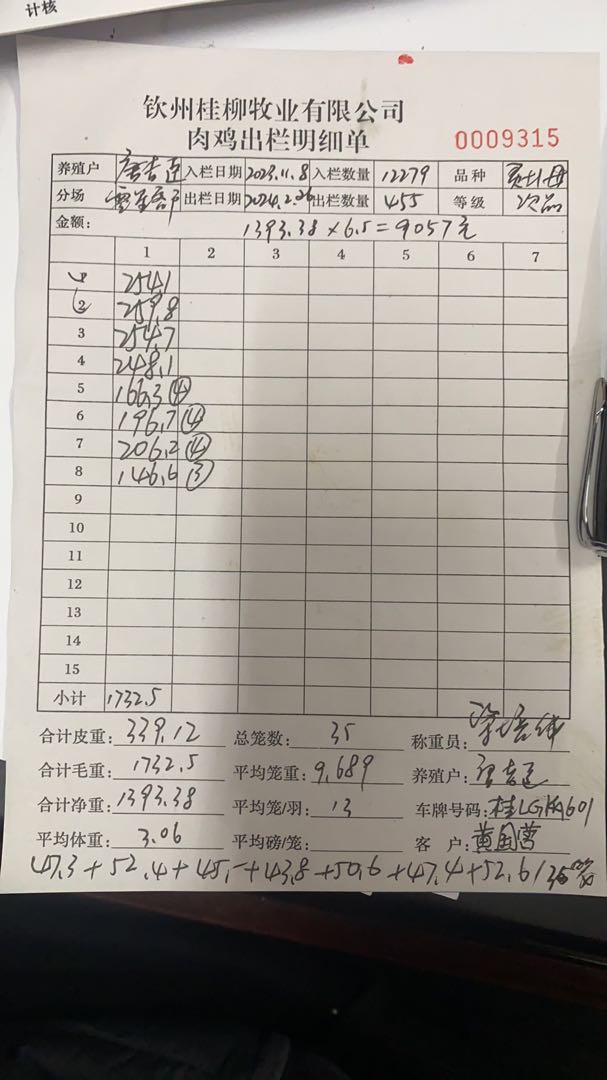 计核
钦州桂柳牧业有限公司
肉鸡出栏明细单
0009315
养殖户 入栏日期 2023.11.8 入栏数量 12279 品种
分场 出栏日期 2024.2.26 出栏数量 455 等级 次品
金额: 1393.38×6.5=9057元
1 2 3 4 5 6 7
1 254.1
2 259.8
3 254.7
4 248.1
5 166.3 ④
6 196.7 ④
7 206.2 ④
8 146.6 ③
9
10
11
12
13
14
15
小计 1732.5
合计皮重: 339.12 总笼数: 35 称重员:
合计毛重: 1732.5 平均笼重: 9.689 养殖户:
合计净重: 1393.38 平均笼/羽: 13 车牌号码: 桂LGKA601
平均体重: 3.06 平均磅/笼: 客 户: 黄国营
47.3+52.4+45.-+43.8+50.6+47.4+52.6/35